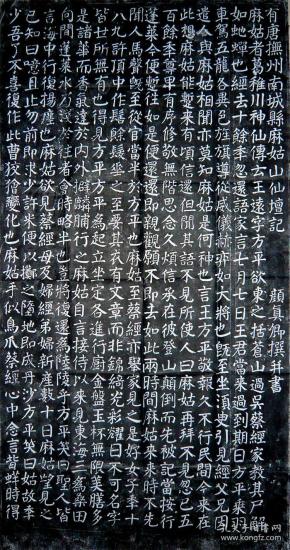 有唐撫州南城縣麻姑山仙壇記 顏真卿撰并書
麻姑者葛稚川神仙傳云王遠字方平欲東之括蒼山過吳蔡經家教其尸解
如蛇蟬也經去十餘年忽還語家言七月七日王君當來過到期日方平乘羽
車駕五龍各異色旌旗導從威儀赫弈如大將也既至坐須臾引見經父兄因
遣人與麻姑相聞亦莫知麻姑是何神也言王方平敬報久不行民間今來在
此想麻姑能暫來有頃信還但聞其語不見所使人曰麻姑再拜不見忽已五
百餘年尊卑有序修敬無階思念久煩信承在彼登山顛倒而先被記當按行
蓬萊今便暫往如是便還還即親觀願不即去如此兩時間麻姑來來時不先
聞人馬聲既至從官當半於方平也麻姑至蔡經亦舉家見之是好女子年十
八九許頂中作髻餘髮垂之至要其衣有文章而非錦綺光彩耀日不可名字
皆世所無有也得見方平方平為起立坐定各進行廚金盤玉杯無限美膳多
是諸華而香氣達於內外擗麟脯行之麻姑自言接待以來見東海三為桑田
向間蓬萊水乃淺於往者會時略半也豈將復還為陸陵乎方平笑曰聖人皆
言海中行復揚塵也麻姑欲見蔡經母及婦經弟婦新產數十日麻姑望見之
已知曰噫且止勿前即求少許米便以擲之墮地即成丹沙方平笑曰姑故年
少吾了不喜復作此曹狡獪變化也麻姑手似鳥爪蔡經心中念言背蛘時得
www.kongfz.com